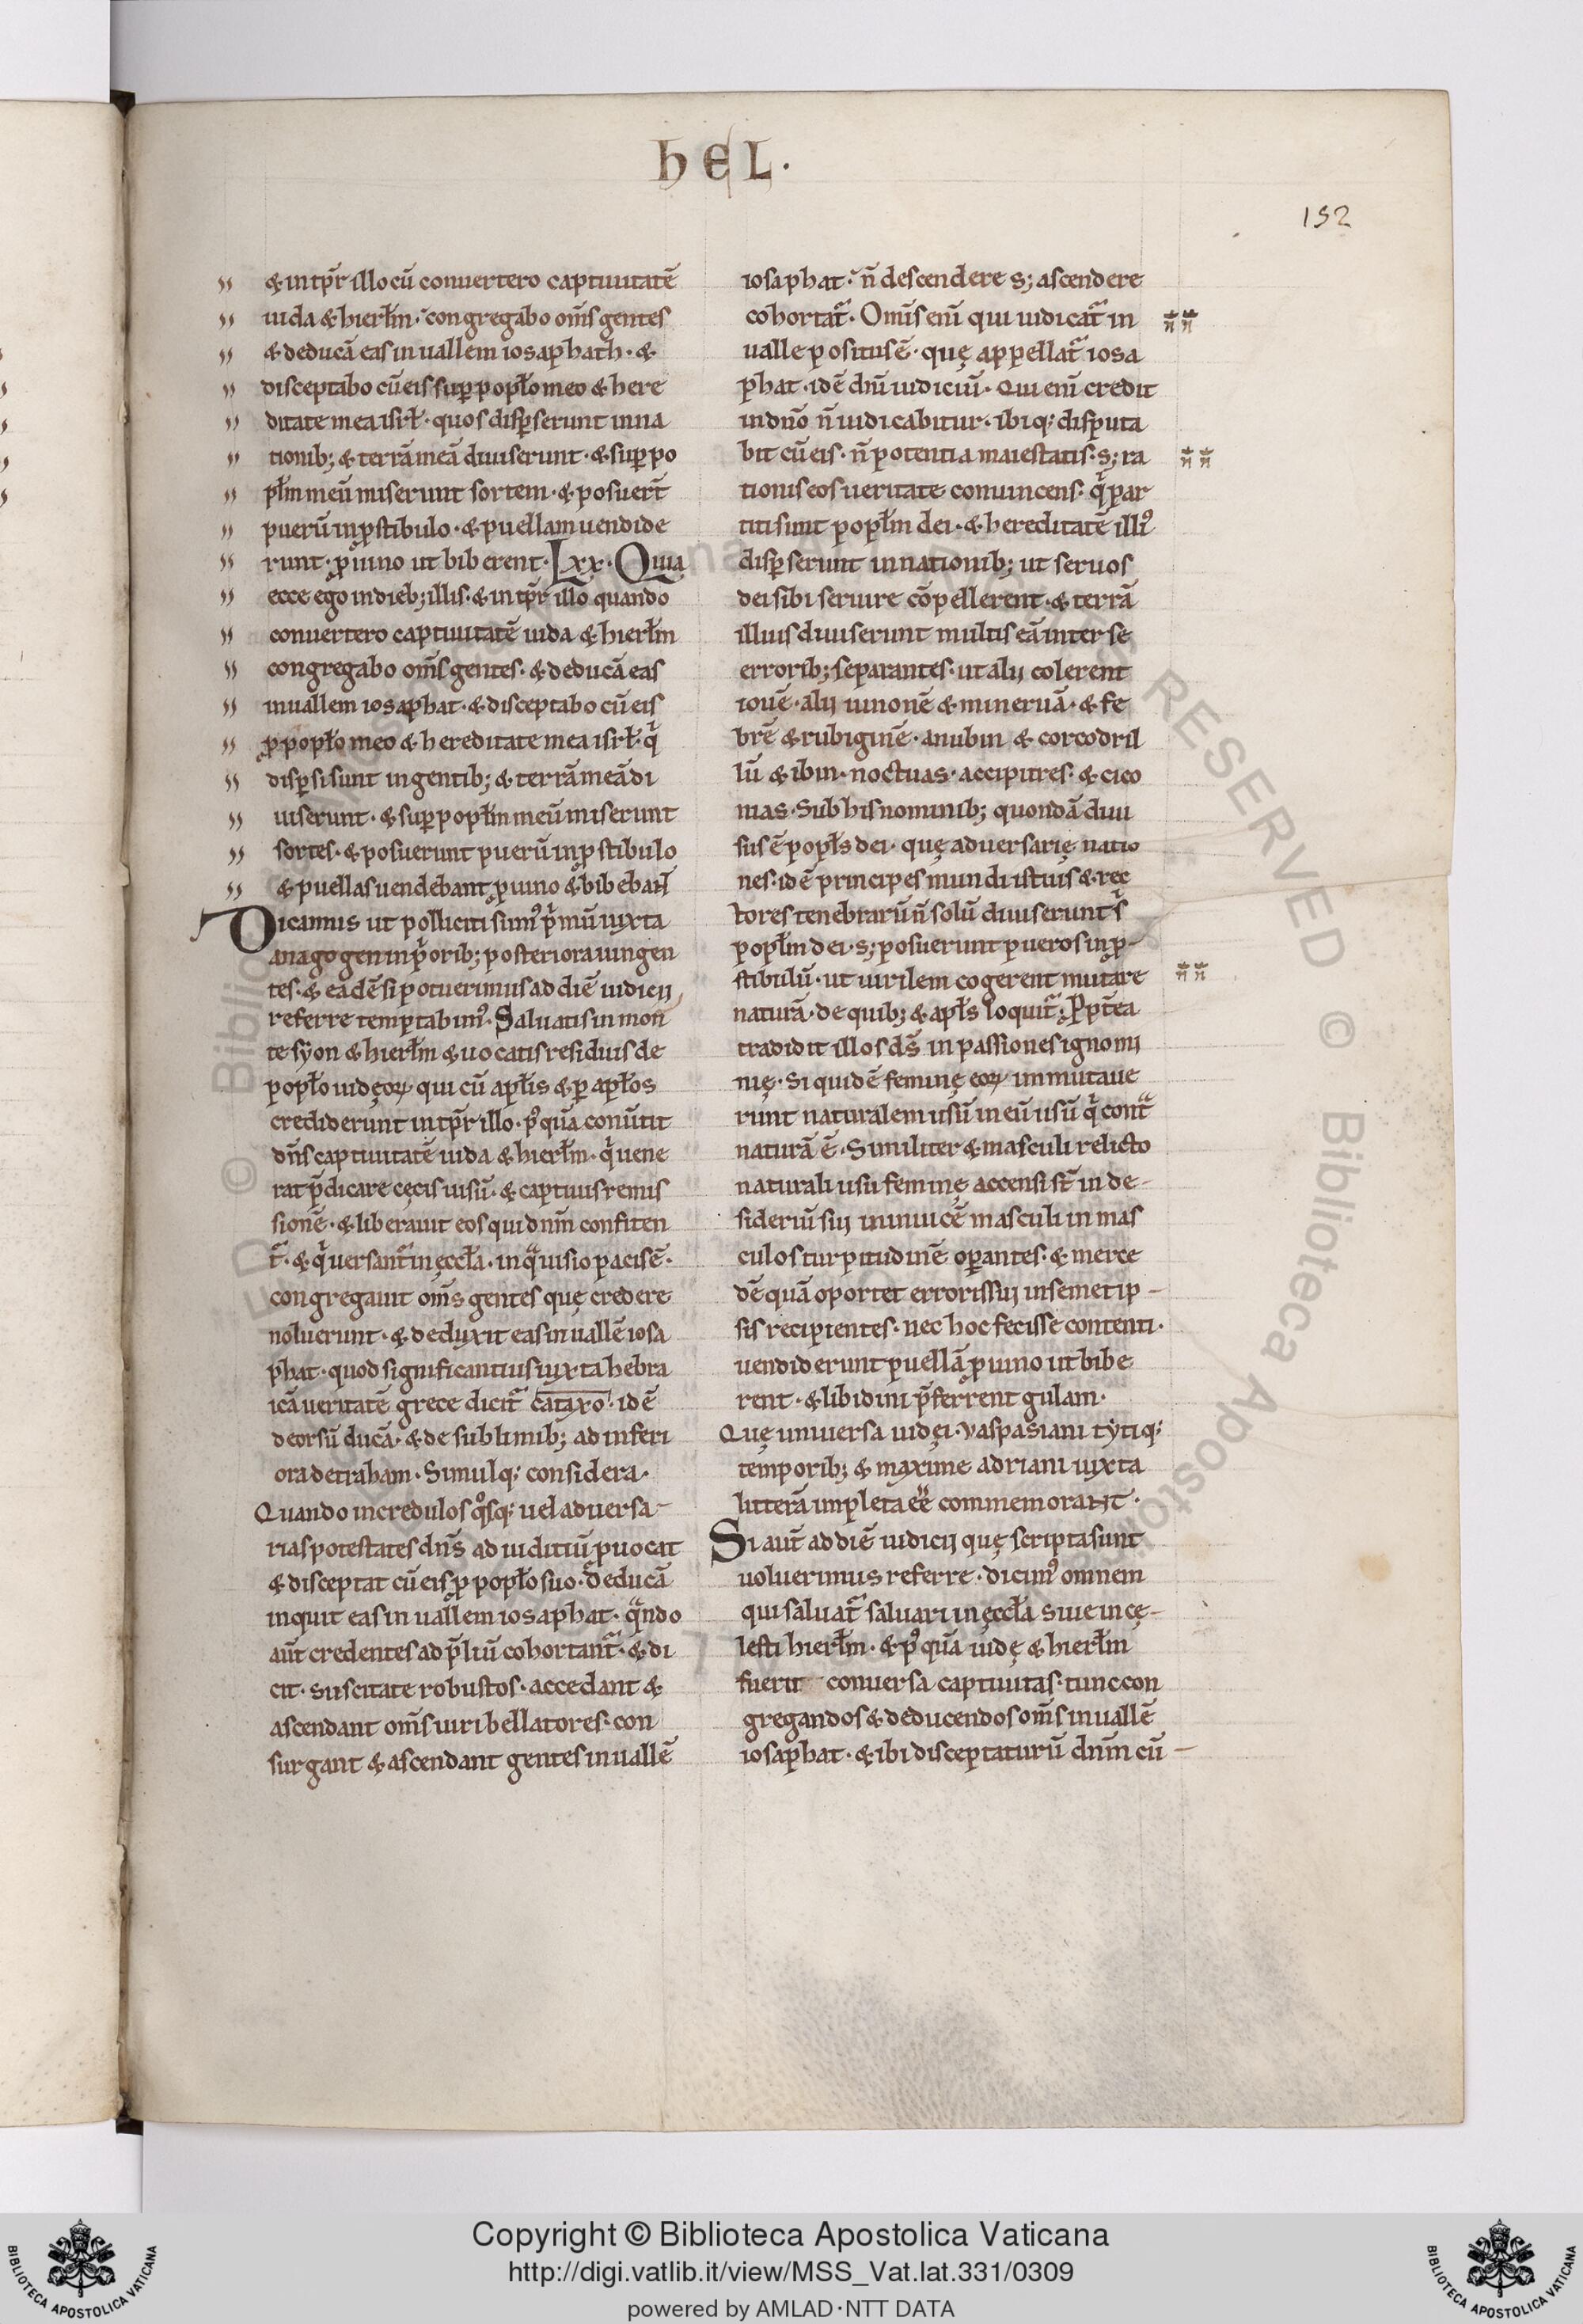 hEL.
152
& in tp̄r illo cū conuertero captiuitatē
iuda & hierłm. congregabo om̄s gentes
& deducā eas in uallem iosaphath. &
disceptabo cū eis sup popło meo & here
ditate mea isrł. quos disꝑserunt in na
tionib; & terrā meā diuiserunt. & sup po
płm meū miserunt sortem. & posuer̄t
puerū in ꝓstibulo. & puellam uendide
runt. ꝓ uino ut biberent. Lxx. Quia
ecce ego in dieb; illis. & in tp̄r illo quando
conuertero captiuitatē iuda & hierłm
congregabo om̄s gentes. & deducā eas
in uallem iosaphat. & disceptabo cū eis
ꝓ popło meo & hereditate mea isrł. q̇
disꝑsi sunt in gentib; & terrā meā di
uiserunt. & suꝑ popłm meū miserunt
sortes. & posuerunt puerū in ꝓstibulo
& puellas uendebant ꝓ uino & bibebant
Dicamus ut polliciti sumꝰ p̍mū iuxta
anagogen in p̍orib; posteriora iungen
tes. & eadē si potuerimus ad diē iudicij
referre temptabimꝰ. Saluatis in mon
te syon & hierłm & uocatis residuis de
popło iudęoꝝ qui cū apłis & ꝑ apłos
crediderunt in tp̄r illo. pꝰquā conūtit
dn̄s captiuitatē iuda & hierłm. q̍ uene
rat p̄dicare cęcis uisū. & captiuis remis
sionē. & liberauit eos qui dnm̄ confiten
t̃. & q̍ uersant̃ in ęccła. in qua uisio pacis ē.
congregauit om̄s gentes quę credere
noluerunt. & deduxit eas in uallē iosa
phat. quod significantius iuxta hebra
icā ueritatē grece dicit̃ cataxo. id ē
deorsū ducā. & de sublimib; ad inferi
ora detraham. Simulq; considera.
Quando incredulos qosq; uel aduersa-
rias potestates dn̄s ad iuditiū ꝓuocat
& disceptat cū eis ꝓ popło suo. deducā
inquit eas in uallem iosaphat. qando
aūt credentes ad p̄liū cohortant̃. & di
cit. suscitate robustos. accedant &
ascendant om̄s uiri bellatores. con
surgant & ascendant gentes in uallē
iosaphat. n̄ descendere s; ascendere
cohortat̃. Omīs enī qui iudicat̃ in
ualle positus ē. quę appellat̃ iosa
phat. id ē dn̄i iudiciū. Qui enī credit
in dn̄o n̄ iudicabitur. ibiq; disputa
bit cū eis. n̄ potentia maiestatis. s; ra
tionis eos ueritate conuincens. q̍ par
titi sunt popłm dei. & hereditatē illiꝰ
disꝑserunt in nationib; ut seruos
dei sibi seruire cōpellerent. & terrā
illius diuiserunt multis eā inter se
errorib; separantes. ut alij colerent
iouē. alij iunonē & mineruā. & fe
brē & rubiginē. anubin & corcodril
lū & ibin. noctuas. accipitres. & cico
nias. Sub his nominib; quondā diui
sus ē popłs dei. quę aduersarię natio
nes. id ē principes mundi istius & rec
tores tenebrarū n̄ solū diuiserunt s̍
popłm dei. s; posuerunt pueros in ꝓ-
stibulū. ut uirilem cogerent mutare
naturā. de quib; & apłs loquit̃. Ꝓpt̄ea
tradidit illos ds̄ in passiones ignomi
nię. Si quidē feminę eoꝝ immutaue
runt naturalem usū in eū usū q̍ cont̃
naturā ē. Similiter & masculi relicto
naturali usu feminę accensi st̄ in de-
sideriū sui inuicē masculi in mas
culos turpitudinē oꝑantes. & merce
dē quā oportet erroris sui in semetip-
sis recipientes. nec hoc fecisse contenti.
uendiderunt puellā ꝓ uino ut bibe
rent. & libidini p̄ferrent gulam.
Quę uniuersa iudęi. vaspasiani tytiq;
temporib; & maxime adriani iuxta
litterā impleta eē commemorant.
Si aut̄ ad diē iudicij quę scripta sunt
uoluerimus referre. dicimꝰ omnem
qui saluat̃ saluari in ęccła siue in cę-
lesti hierłm. & pꝰ quā iudę & hierłm
fuerit conuersa captiuitas. tunc con
gregandos & deducendos om̄s in uallē
iosaphat. & ibi disceptaturū dnm̄ cū-
Copyright © Biblioteca Apostolica Vaticana
http://digi.vatlib.it/view/MSS_Vat.lat.331/0309
powered by AMLAD·NTT DATA
BIBLIOTECA APOSTOLICA VATICANA
BIBLIOTECA APOSTOLICA VATICANA